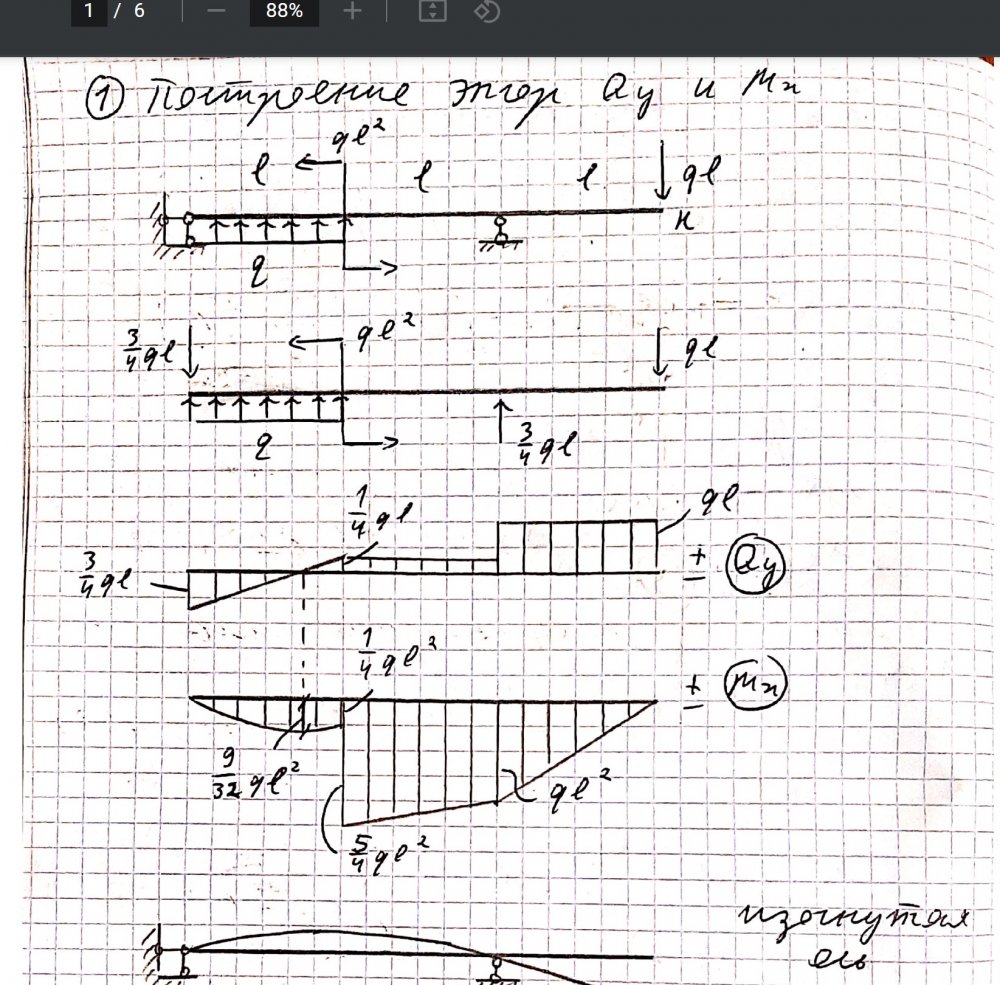 1 / 6 — 88% +
① Построение эпюр Qy и Mx
ql²
l l l ql
K
q
3/4 ql ql² ql
q 3/4 ql
1/4 ql ql
3/4 ql + − Qy
1/4 ql²
+ − Mx
9/32 ql² ql²
5/4 ql²
изогнутая
ось